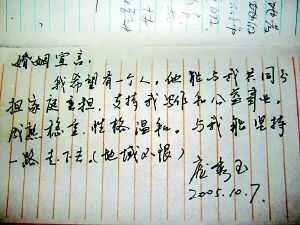 婚姻宣言：
我希望有一个人，他能与我共同分
担家庭重担，支持我工作和公益事业。
成熟稳重，性格温和。与我能坚持
一路走下去。（地域不限）
2005.10.7.